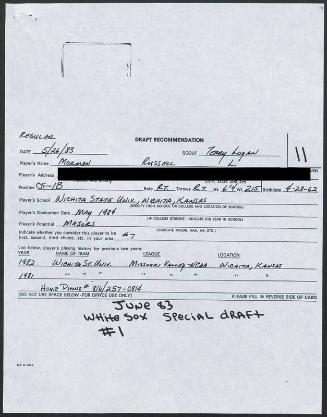 REGULAR
DRAFT RECOMMENDATION
DATE 5/26/83 SCOUT Terry Logan
11
Player's Name MORMAN RUSSELL L.
Player's Address
Position CF-1B Bats RT. Throws RT. Ht. 6'4 Wt. 215 Birthdate 4-28-62
Player's School WICHITA STATE UNIV., WICHITA, KANSAS
(SPECIFY HIGH SCHOOL OR COLLEGE AND LOCATION OF SCHOOL)
Player's Graduation Date MAY 1984
(IF COLLEGE STUDENT, INDICATE HIS YEAR IN SCHOOL)
Player's Potential MAJORS
(INDICATE MAJOR, AAA, AA, ETC.)
Indicate whether you consider this player to be
first, second, third choice, etc. in your area #7
List below, player's playing history for previous two years:
YEAR NAME OF TEAM LEAGUE LOCATION
1982 WICHITA ST. UNIV. MISSOURI VALLEY-NCAA WICHITA, KANSAS
1981 " " " " " " " "
HOME PHONE # 816/257-0814
(DO NOT USE SPACE BELOW - FOR OFFICE USE ONLY) PLEASE FILL IN REVERSE SIDE OF CARD
JUNE 83
WHITE SOX SPECIAL DRAFT
#1